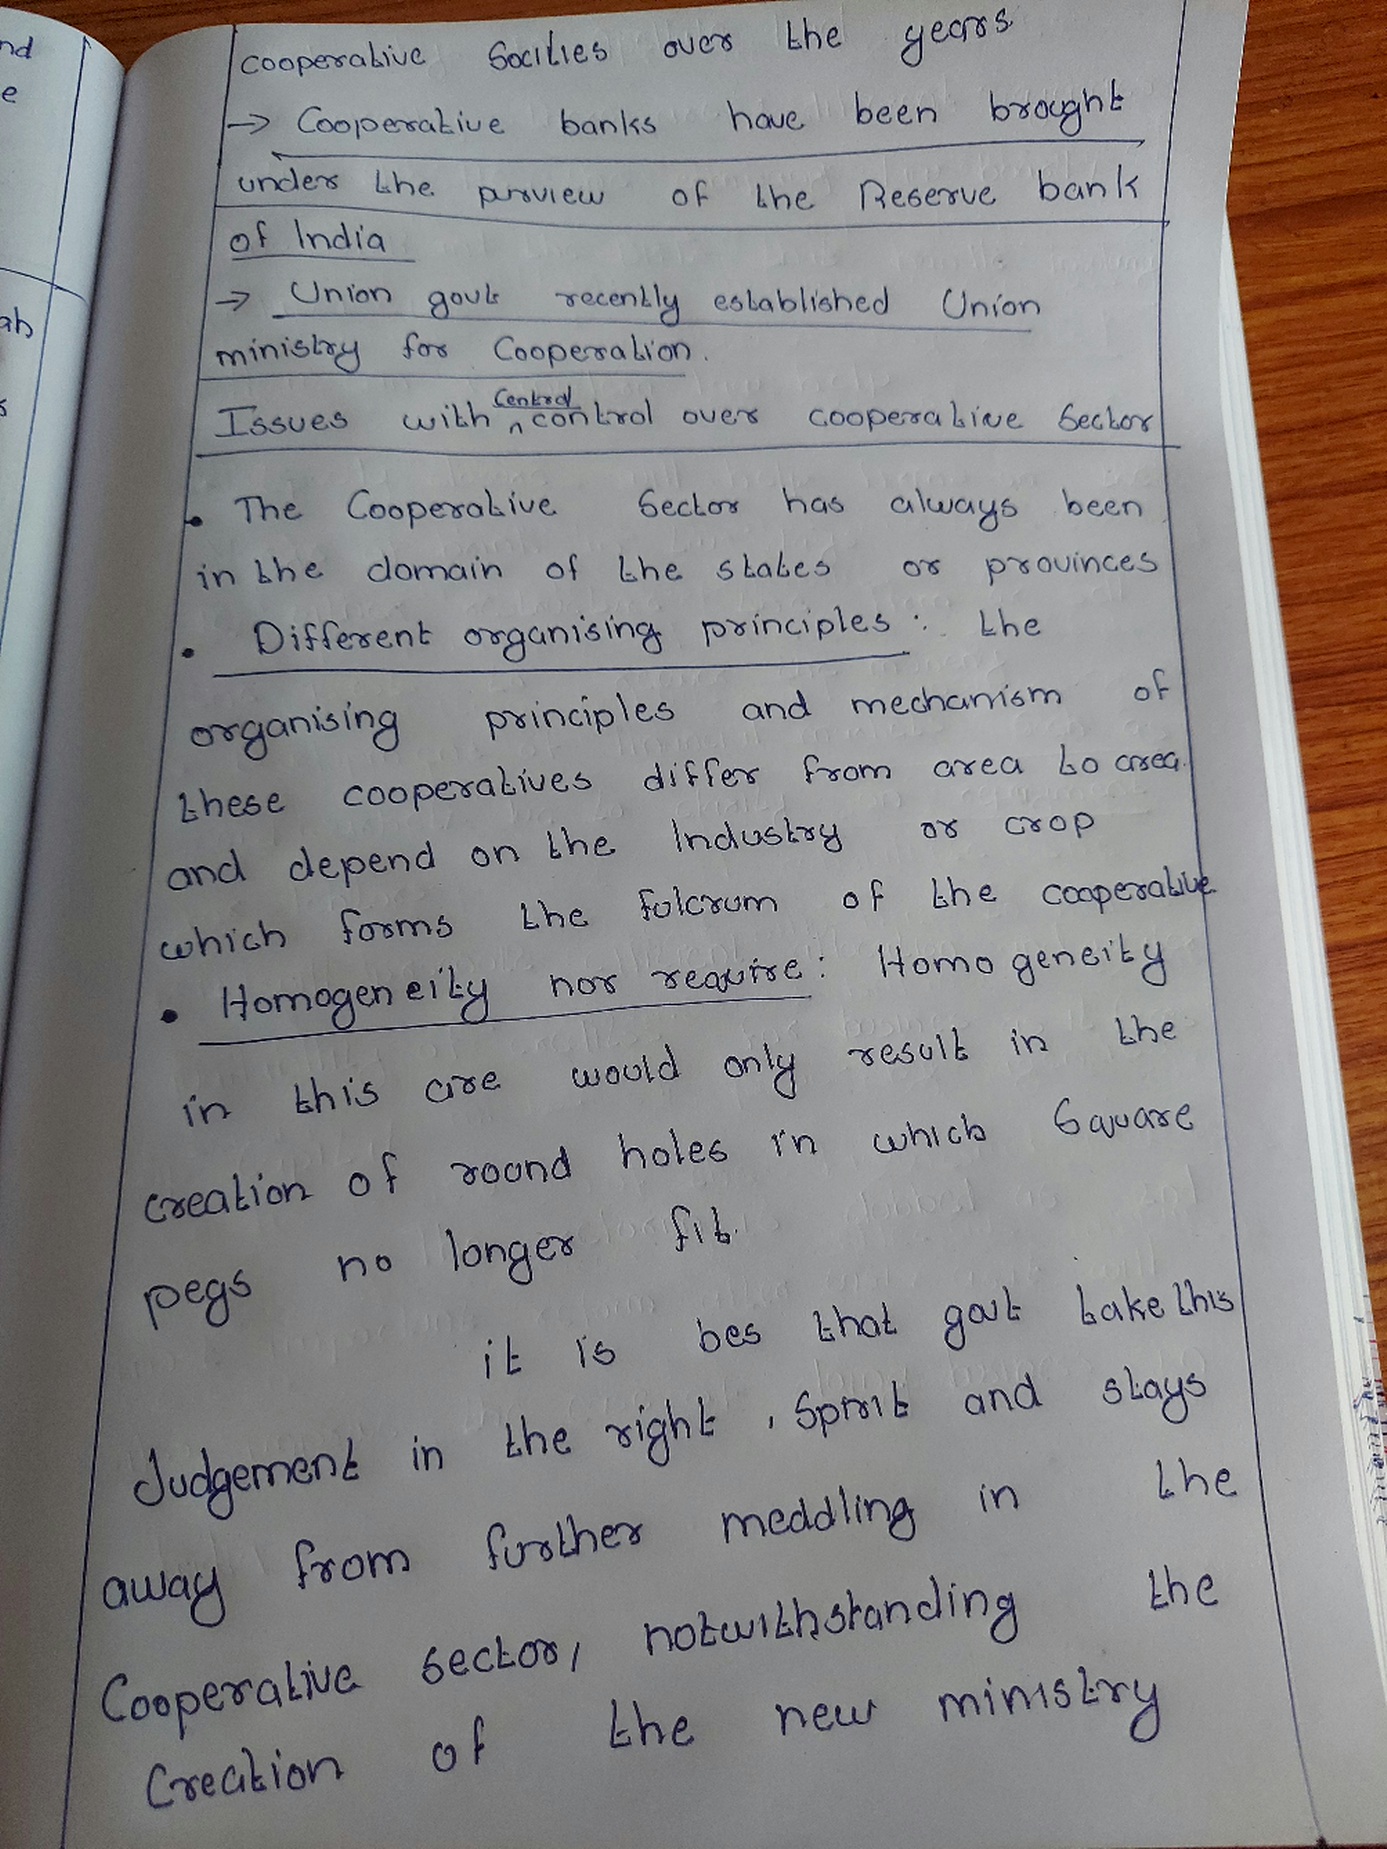 cooperative Socities over the years
→ Cooperative banks have been brought
under the purview of the Reserve bank
of India
→ Union govt recently established Union
ministry for Cooperation.
Issues with Central control over cooperative Sector
• The Cooperative Sector has always been
in the domain of the states or provinces
• Different organising principles: the
organising principles and mechanism of
these cooperatives differ from area to area
and depend on the Industry or crop
which forms the fulcrum of the cooperative
• Homogeneity nor require: Homogeneity
in this are would only result in the
creation of round holes in which Square
pegs no longer fit.
it is bes that govt take this
Judgement in the right, Sprit and stays
away from further meddling in the
Cooperative sector, notwithstanding the
Creation of the new ministry
nd
e